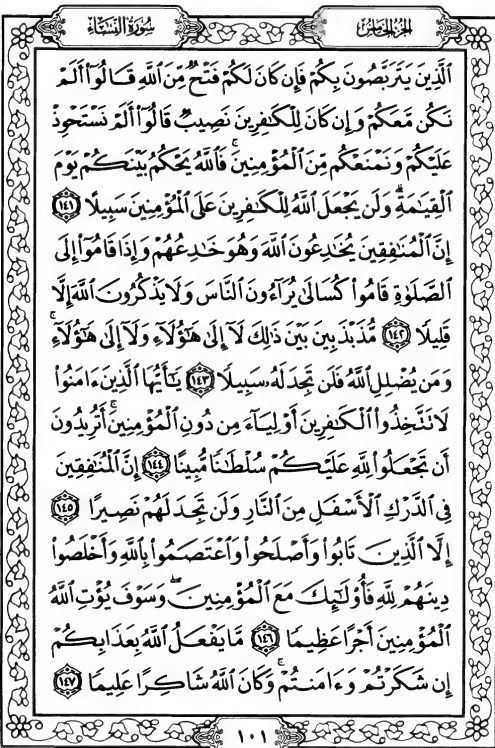 الجزء الخامس
سورة النساء
ٱلَّذِينَ يَتَرَبَّصُونَ بِكُمْ فَإِن كَانَ لَكُمْ فَتْحٌ مِّنَ ٱللَّهِ قَالُوٓا۟ أَلَمْ
نَكُن مَّعَكُمْ وَإِن كَانَ لِلْكَٰفِرِينَ نَصِيبٌ قَالُوٓا۟ أَلَمْ نَسْتَحْوِذْ
عَلَيْكُمْ وَنَمْنَعْكُم مِّنَ ٱلْمُؤْمِنِينَ ۚ فَٱللَّهُ يَحْكُمُ بَيْنَكُمْ يَوْمَ
ٱلْقِيَٰمَةِ ۗ وَلَن يَجْعَلَ ٱللَّهُ لِلْكَٰفِرِينَ عَلَى ٱلْمُؤْمِنِينَ سَبِيلًا ١٤١
إِنَّ ٱلْمُنَٰفِقِينَ يُخَٰدِعُونَ ٱللَّهَ وَهُوَ خَٰدِعُهُمْ وَإِذَا قَامُوٓا۟ إِلَى
ٱلصَّلَوٰةِ قَامُوا۟ كُسَالَىٰ يُرَآءُونَ ٱلنَّاسَ وَلَا يَذْكُرُونَ ٱللَّهَ إِلَّا
قَلِيلًا ١٤٢ مُّذَبْذَبِينَ بَيْنَ ذَٰلِكَ لَآ إِلَىٰ هَٰٓؤُلَآءِ وَلَآ إِلَىٰ هَٰٓؤُلَآءِ ۚ
وَمَن يُضْلِلِ ٱللَّهُ فَلَن تَجِدَ لَهُۥ سَبِيلًا ١٤٣ يَٰٓأَيُّهَا ٱلَّذِينَ ءَامَنُوا۟
لَا تَتَّخِذُوا۟ ٱلْكَٰفِرِينَ أَوْلِيَآءَ مِن دُونِ ٱلْمُؤْمِنِينَ ۚ أَتُرِيدُونَ
أَن تَجْعَلُوا۟ لِلَّهِ عَلَيْكُمْ سُلْطَٰنًا مُّبِينًا ١٤٤ إِنَّ ٱلْمُنَٰفِقِينَ
فِى ٱلدَّرْكِ ٱلْأَسْفَلِ مِنَ ٱلنَّارِ وَلَن تَجِدَ لَهُمْ نَصِيرًا ١٤٥
إِلَّا ٱلَّذِينَ تَابُوا۟ وَأَصْلَحُوا۟ وَٱعْتَصَمُوا۟ بِٱللَّهِ وَأَخْلَصُوا۟
دِينَهُمْ لِلَّهِ فَأُو۟لَٰٓئِكَ مَعَ ٱلْمُؤْمِنِينَ ۖ وَسَوْفَ يُؤْتِ ٱللَّهُ
ٱلْمُؤْمِنِينَ أَجْرًا عَظِيمًا ١٤٦ مَّا يَفْعَلُ ٱللَّهُ بِعَذَابِكُمْ
إِن شَكَرْتُمْ وَءَامَنتُمْ ۚ وَكَانَ ٱللَّهُ شَاكِرًا عَلِيمًا ١٤٧
١٠١